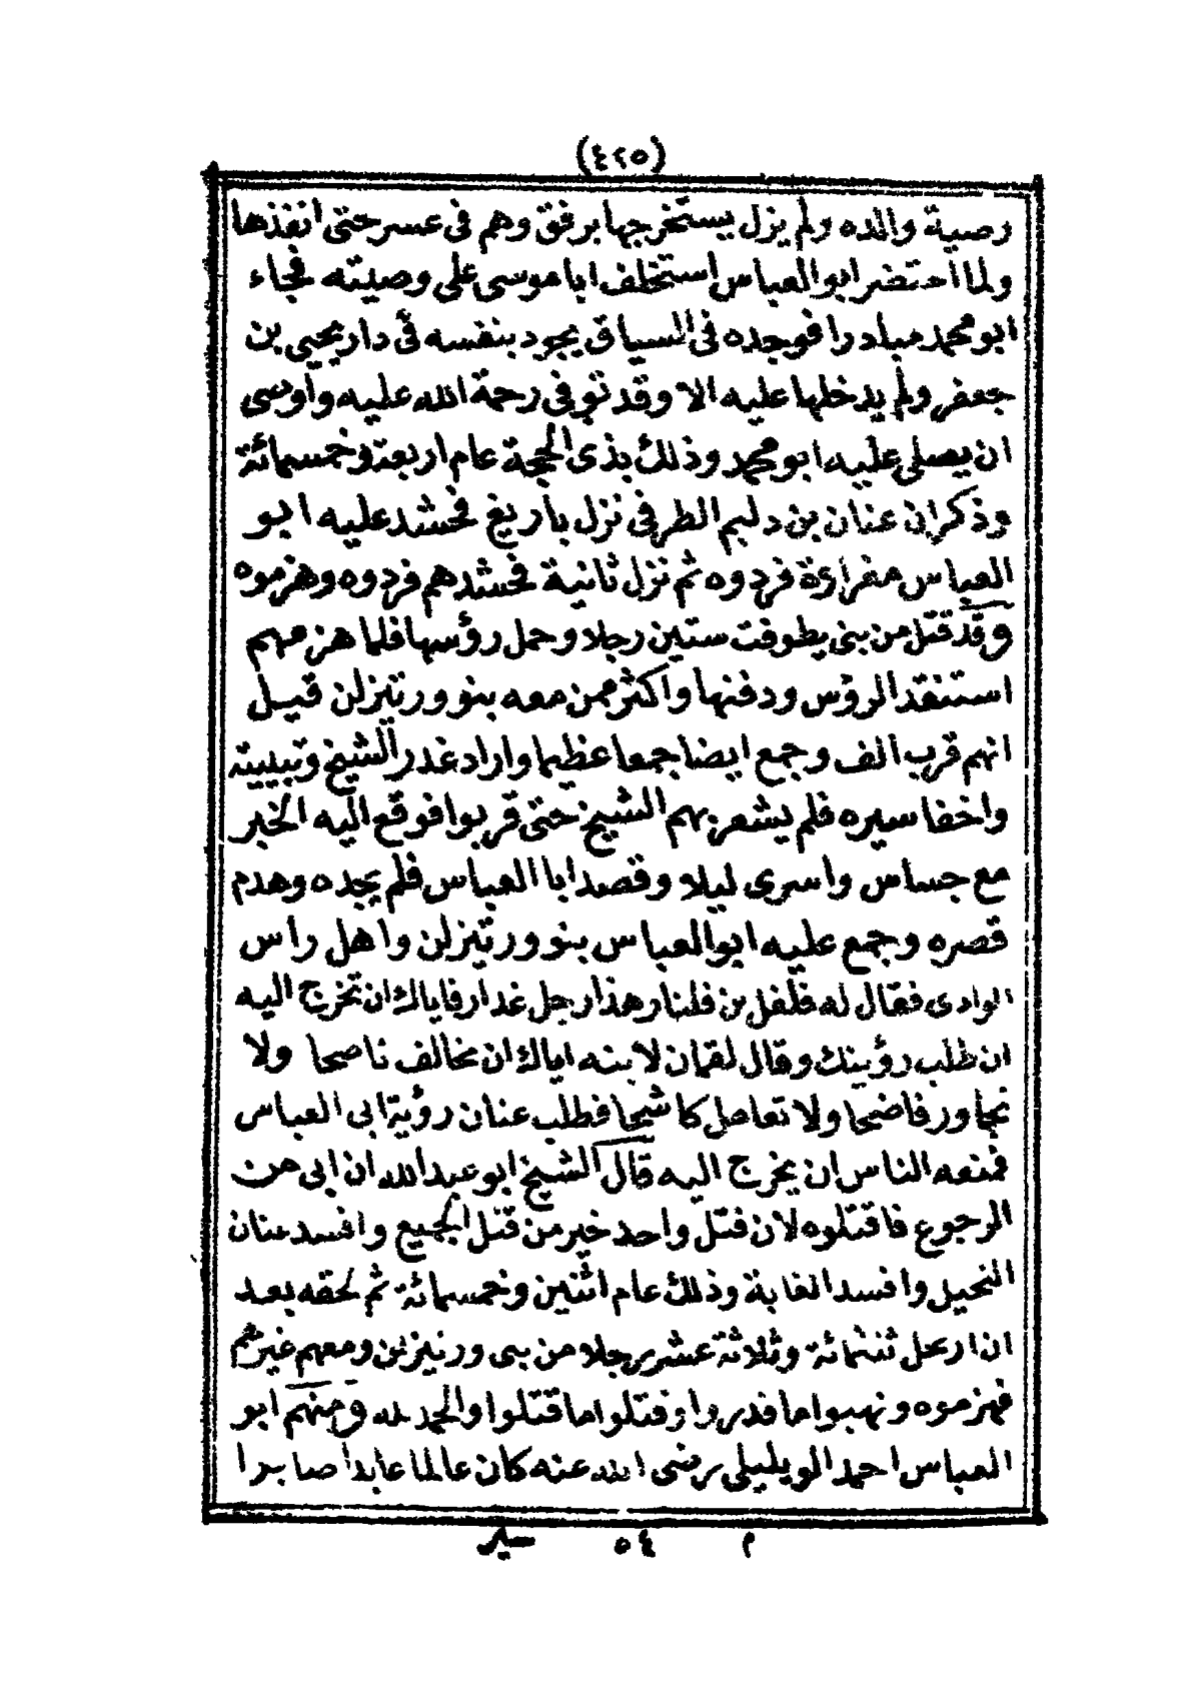 (٤٢٥)
وصية والده ولم يزل يستخرجها برفق وهم في عسر حتى انفذها
ولما احتضر ابو العباس استخلف ابا موسى على وصيته فجاء
ابو محمد مبادرا فوجده في السياق يجود بنفسه في دار يحيى بن
جعفر ولم يدخلها عليه الا وقد توفي رحمة الله عليه واوصى
ان يصلي عليه ابو محمد وذلك بذى الحجة عام اربعة وخمسمائة
وذكر ان عنان بن دليم الطرفي نزل باريغ فحشد عليه ابو
العباس مغراوة فردوه ثم نزل ثانية فحشدهم فردوه وهزموه
وقد قتل من بني يطوفت ستين رجلا وحمل رؤسها فلما هزمهم
استنقد الرؤس ودفنها واكثر ممن معه بنو ورتيزلن قيل
انهم قرب الف وجمع ايضا جمعا عظيما واراد غدر الشيخ وتبييته
واخفا سيره فلم يشعر بهم الشيخ حتى قربوا فوقع اليه الخبر
مع جساس واسرى ليلا وقصد ابا العباس فلم يجده وهدم
قصره وجمع عليه ابو العباس بنو ورتيزلن واهل راس
الوادى فقال له فلفل بن فلنار هذا رجل غدار فاياك ان تخرج اليه
ان طلب رؤيتك وقال لقمان لابنه اياك ان تخالف ناصحا ولا
تجاور فاضحا ولا تعامل كاشحا فطلب عنان رؤية ابى العباس
فمنعه الناس ان يخرج اليه قال الشيخ ابو عبد الله ان ابى من
الرجوع فاقتلوه لان قتل واحد خير من قتل الجميع وافسد عنان
النخيل وافسد الغابة وذلك عام اثنين وخمسمائة ثم لحقه بعد
ان ارتحل ثلثمائة وثلاثة عشر رجلا من بنى ورتيزلن ومعهم غيرهم
فهزموه ونهبوا ما قدروا وقتلوا ما قتلوا والحمد لله ومنهم ابو
العباس احمد الويليلى رضى الله عنه كان عالما عابدا صابرا
م ٥٤ سير